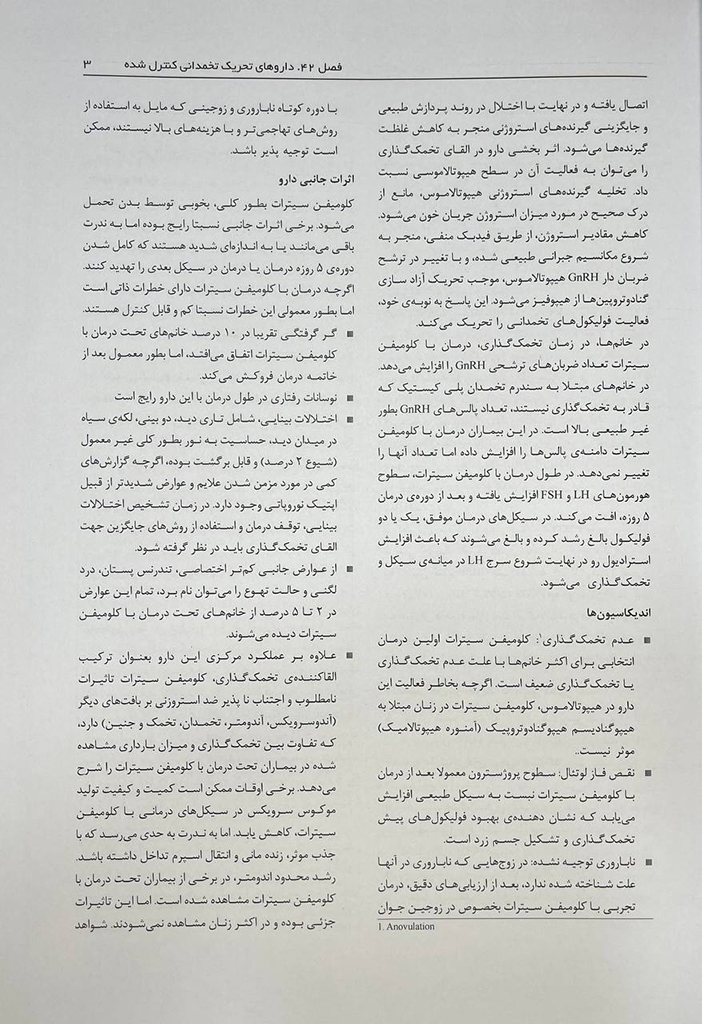 فصل ۴۲. داروهای تحریک تخمدانی کنترل شده ۳
اتصال یافته و در نهایت با اختلال در روند پردازش طبیعی
و جایگزینی گیرنده‌های استروژنی منجر به کاهش غلظت
گیرنده‌ها می‌شود. اثر بخشی دارو در القای تخمک‌گذاری
را می‌توان به فعالیت آن در سطح هیپوتالاموسی نسبت
داد. تخلیه گیرنده‌های استروژنی هیپوتالاموس، مانع از
درک صحیح در مورد میزان استروژن جریان خون می‌شود.
کاهش مقادیر استروژن، از طریق فیدبک منفی، منجر به
شروع مکانسیم جبرانی طبیعی شده، و با تغییر در ترشح
ضربان دار GnRH هیپوتالاموس، موجب تحریک آزاد سازی
گنادوتروپین‌ها از هیپوفیز می‌شود. این پاسخ به نوبه‌ی خود،
فعالیت فولیکول‌های تخمدانی را تحریک می‌کند.
در خانم‌ها، در زمان تخمک‌گذاری، درمان با کلومیفن
سیترات تعداد ضربان‌های ترشحی GnRH را افزایش می‌دهد.
در خانم‌های مبتلا به سندرم تخمدان پلی کیستیک که
قادر به تخمک‌گذاری نیستند، تعداد پالس‌های GnRH بطور
غیر طبیعی بالا است. در این بیماران درمان با کلومیفن
سیترات دامنه‌ی پالس‌ها را افزایش داده اما تعداد آنها را
تغییر نمی‌دهد. در طول درمان با کلومیفن سیترات، سطوح
هورمون‌های LH و FSH افزایش یافته و بعد از دوره‌ی درمان
۵ روزه، افت می‌کند. در سیکل‌های درمان موفق، یک یا دو
فولیکول بالغ رشد کرده و بالغ می‌شوند که باعث افزایش
استرادیول رو در نهایت شروع سرج LH در میانه‌ی سیکل و
تخمک‌گذاری می‌شود.
اندیکاسیون‌ها
■ عدم تخمک‌گذاری¹: کلومیفن سیترات اولین درمان
انتخابی برای اکثر خانم‌ها با علت عدم تخمک‌گذاری
یا تخمک‌گذاری ضعیف است. اگرچه بخاطر فعالیت این
دارو در هیپوتالاموس، کلومیفن سیترات در زنان مبتلا به
هیپوگنادیسم هیپوگنادوتروپیک (آمنوره هیپوتالامیک)
موثر نیست..
■ نقص فاز لوتئال: سطوح پروژسترون معمولا بعد از درمان
با کلومیفن سیترات نبست به سیکل طبیعی افزایش
می‌یابد که نشان دهنده‌ی بهبود فولیکول‌های پیش
تخمک‌گذاری و تشکیل جسم زرد است.
■ ناباروری توجیه نشده: در زوج‌هایی که ناباروری در آنها
علت شناخته شده ندارد، بعد از ارزیابی‌های دقیق، درمان
تجربی با کلومیفن سیترات بخصوص در زوجین جوان
1. Anovulation
با دوره کوتاه ناباروری و زوجینی که مایل به استفاده از
روش‌های تهاجمی‌تر و با هزینه‌های بالا نیستند، ممکن
است توجیه پذیر باشد.
اثرات جانبی دارو
کلومیفن سیترات بطور کلی، بخوبی توسط بدن تحمل
می‌شود. برخی اثرات جانبی نسبتا رایج بوده اما به ندرت
باقی می‌مانند یا به اندازه‌ای شدید هستند که کامل شدن
دوره‌ی ۵ روزه درمان یا درمان در سیکل بعدی را تهدید کنند.
اگرچه درمان با کلومیفن سیترات دارای خطرات ذاتی است
اما بطور معمولی این خطرات نسبتا کم و قابل کنترل هستند.
■ گر گرفتگی تقریبا در ۱۰ درصد خانم‌های تحت درمان با
کلومیفن سیترات اتفاق می‌افتد، اما بطور معمول بعد از
خاتمه درمان فروکش می‌کند.
■ نوسانات رفتاری در طول درمان با این دارو رایج است
■ اختلالات بینایی، شامل تاری دید، دو بینی، لکه‌ی سیاه
در میدان دید، حساسیت به نور بطور کلی غیر معمول
(شیوع ۲ درصد) و قابل برگشت بوده، اگرچه گزارش‌های
کمی در مورد مزمن شدن علایم و عوارض شدیدتر از قبیل
اپتیک نوروپاتی وجود دارد. در زمان تشخیص اختلالات
بینایی، توقف درمان و استفاده از روش‌های جایگزین جهت
القای تخمک‌گذاری باید در نظر گرفته شود.
■ از عوارض جانبی کم‌تر اختصاصی، تندرنس پستان، درد
لگنی و حالت تهوع را می‌توان نام برد، تمام این عوارض
در ۲ تا ۵ درصد از خانم‌های تحت درمان با کلومیفن
سیترات دیده می‌شوند.
■ علاوه بر عملکرد مرکزی این دارو بعنوان ترکیب
القاکننده‌ی تخمک‌گذاری، کلومیفن سیترات تاثیرات
نامطلوب و اجتناب نا پذیر ضد استروزنی بر بافت‌های دیگر
(آندوسرویکس، آندومتر، تخمدان، تخمک و جنین) دارد،
که تفاوت بین تخمک‌گذاری و میزان بارداری مشاهده
شده در بیماران تحت درمان با کلومیفن سیترات را شرح
می‌دهد. برخی اوقات ممکن است کمیت و کیفیت تولید
موکوس سرویکس در سیکل‌های درمانی با کلومیفن
سیترات، کاهش یابد. اما به ندرت به حدی می‌رسد که با
جذب موثر، زنده مانی و انتقال اسپرم تداخل داشته باشد.
رشد محدود اندومتر، در برخی از بیماران تحت درمان با
کلومیفن سیترات مشاهده شده است. اما این تاثیرات
جزئی بوده و در اکثر زنان مشاهده نمی‌شودند. شواهد